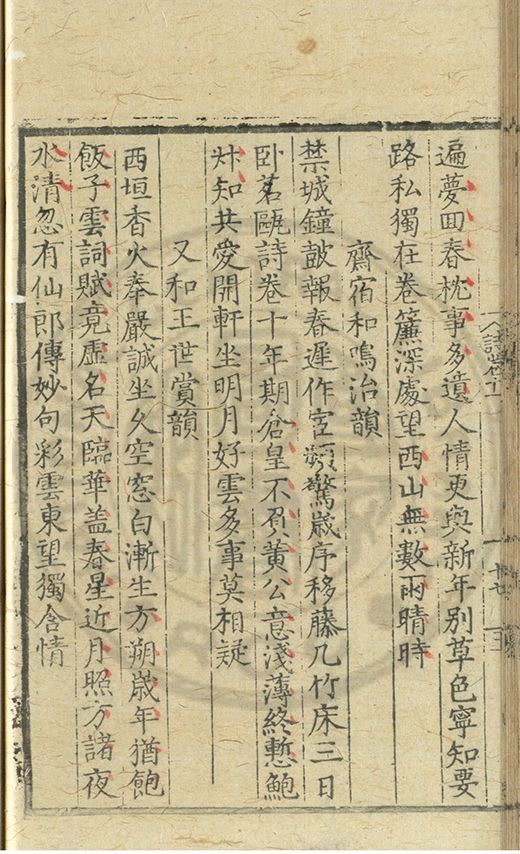 遍夢回春枕事多遺人情更與新年别草色寧知要
路私獨在卷簾深處望西山無數雨晴時
齋宿和鳴治韻
禁城鐘皷報春遲作宦頻驚歳序移藤几竹床三日
卧茗甌詩卷十年期倉皇不負黄公意淺薄終慙鮑
叔知共愛開軒坐明月好雲多事莫相疑
又和王世賞韻
西垣香火奉嚴誠坐久空窓白漸生方朔歳年猶飽
飯子雲詞賦竟虚名天臨華盖春星近月照方諸夜
水清忽有仙郎傳妙句彩雲東望獨含情